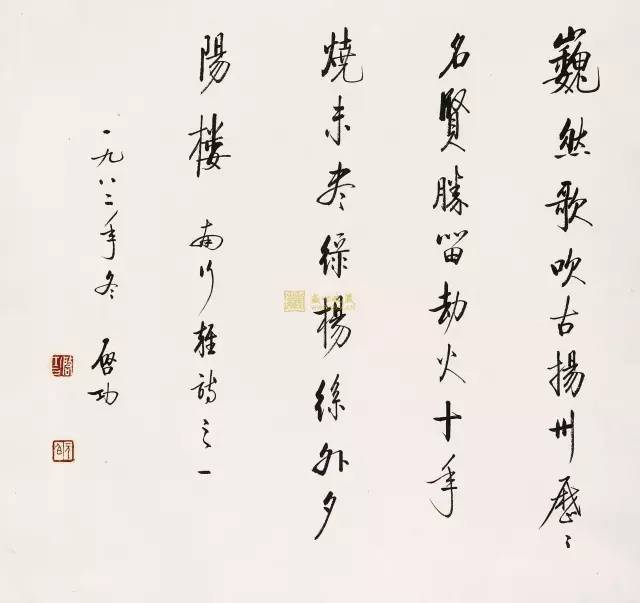 巍然歌吹古揚州歷〻
名賢勝留劫火十年
燒未盡綠楊絲外夕
陽樓 南行雜詩之一
一九八二年冬 啓功